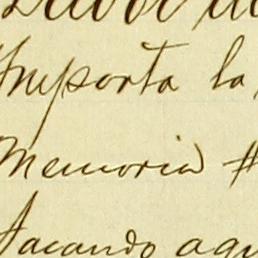 Importa la
Memoria #
sacando aqu